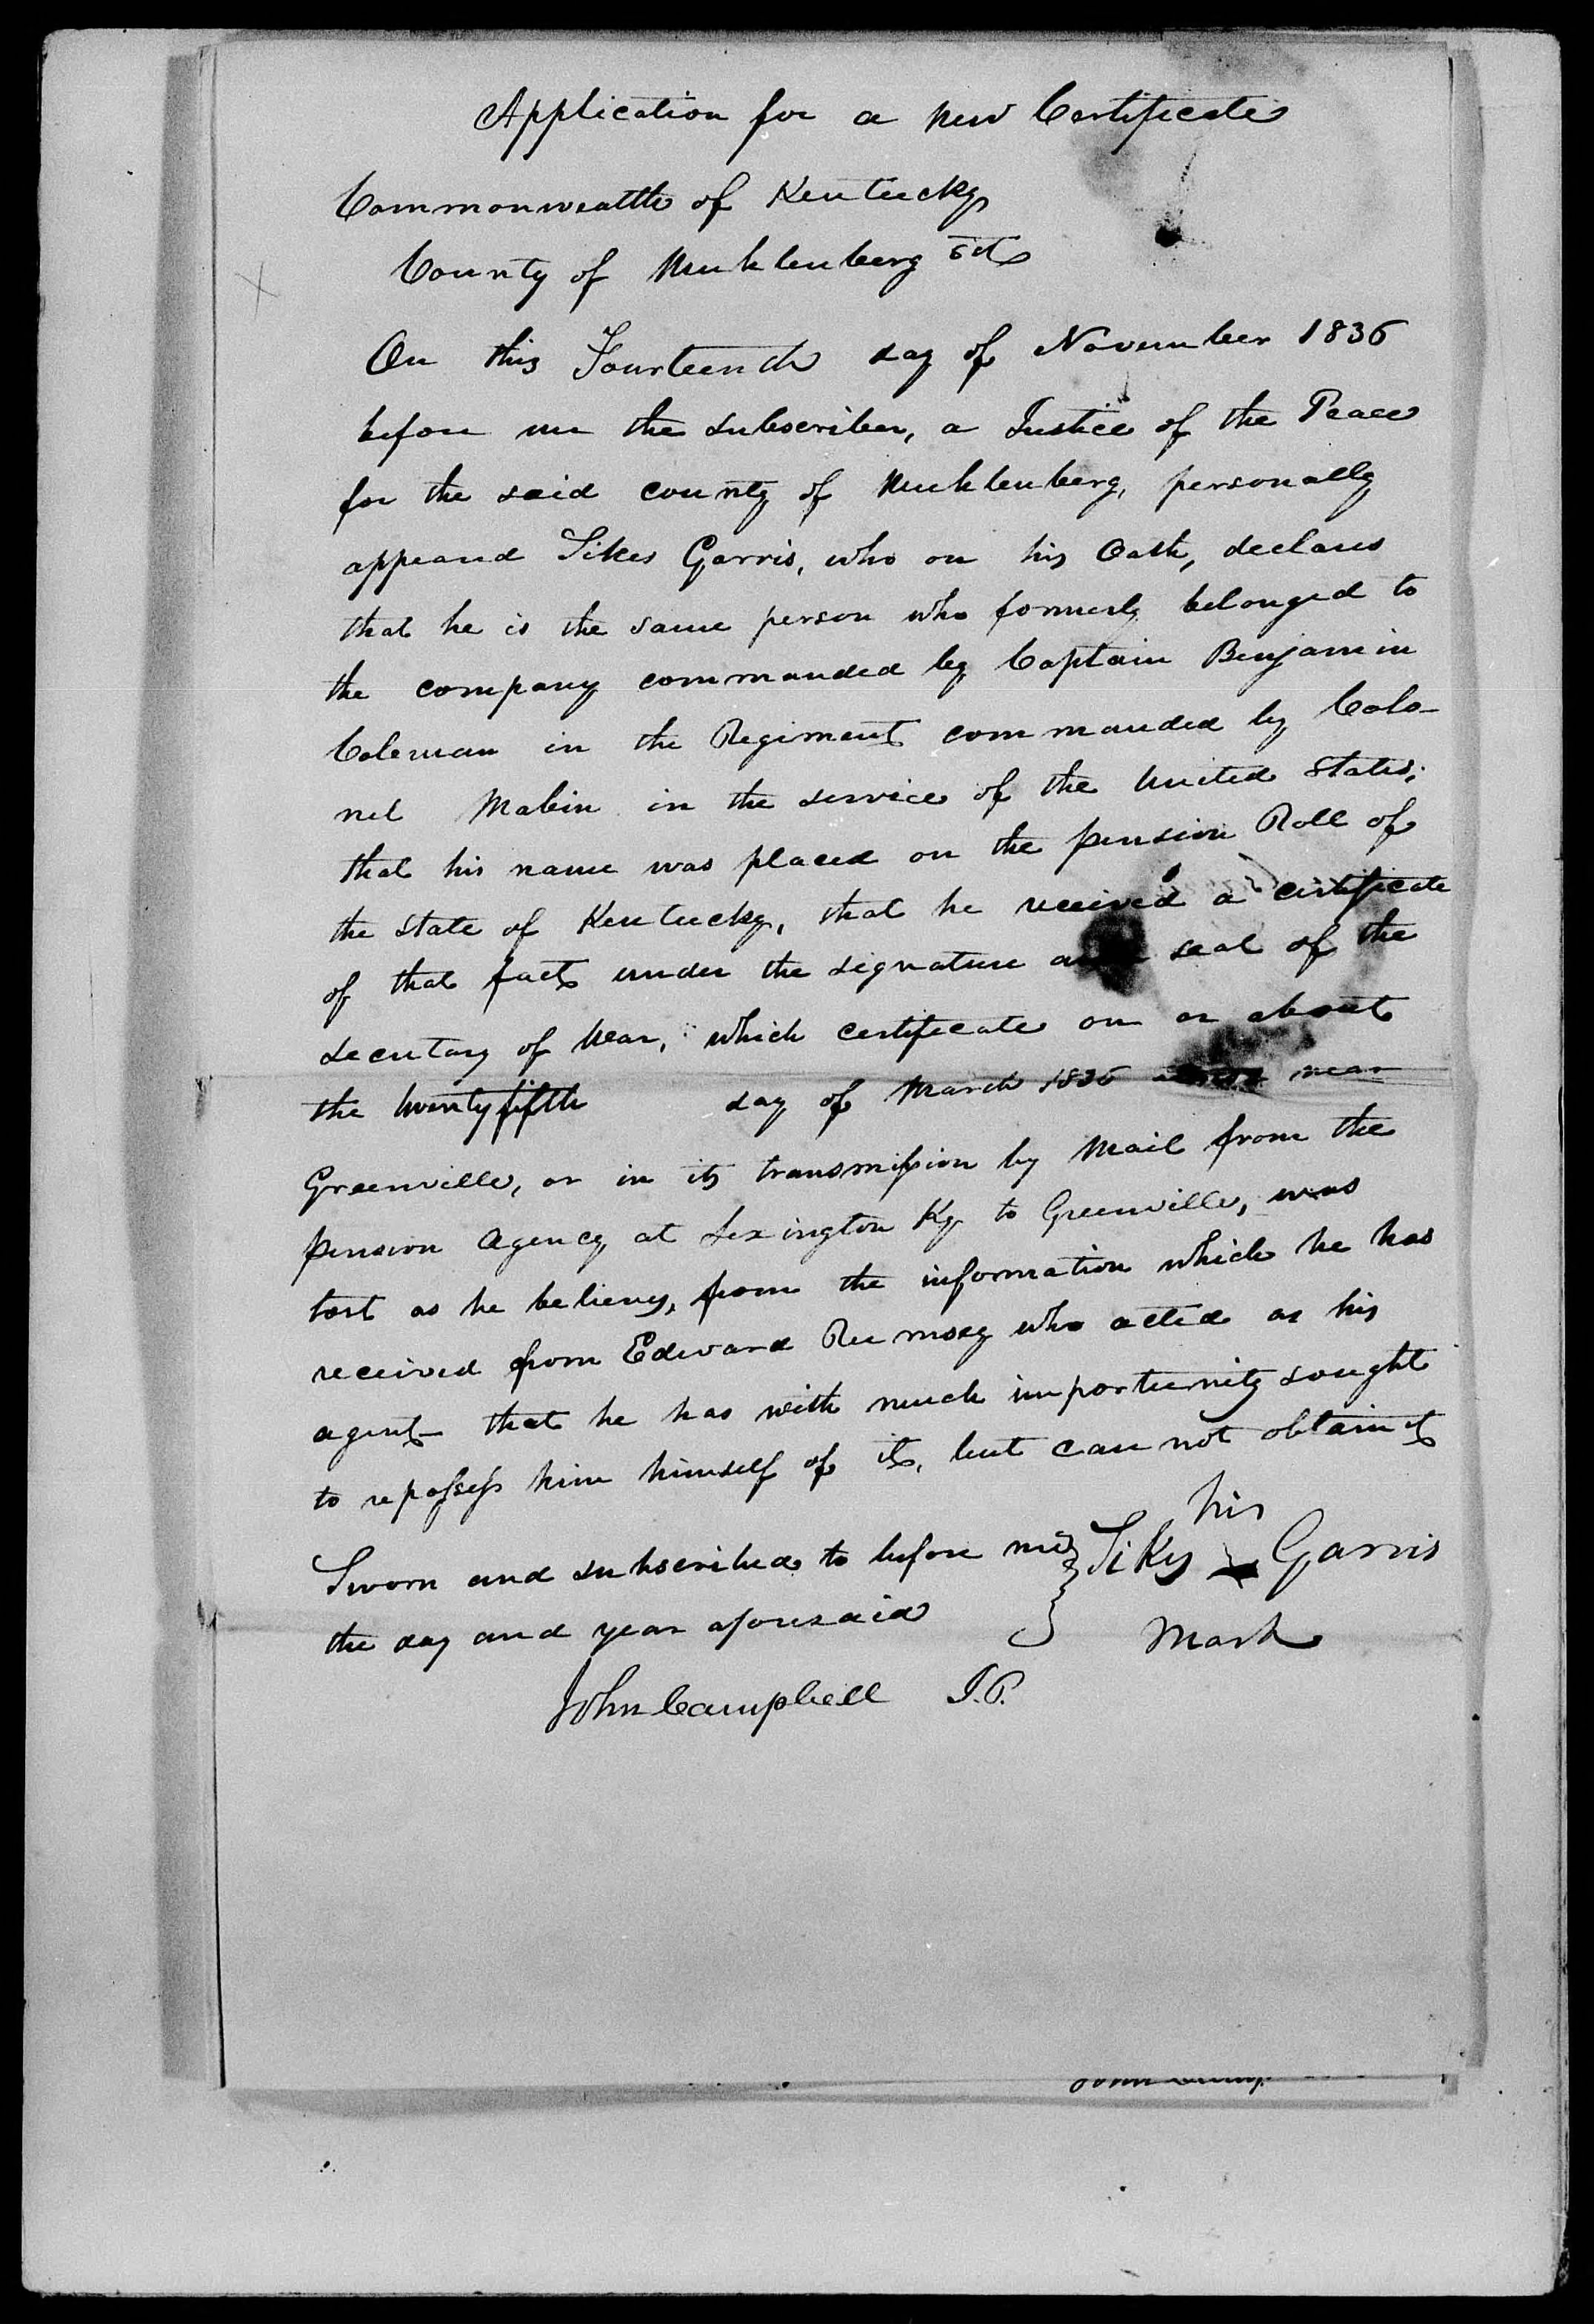 Application for a new Certificate
Commonwealth of Kentucky
County of Muhlenberg Sct
On this Fourteenth day of November 1836
before me the subscriber, a Justice of the Peace
for the said county of Muhlenberg, personally
appeard Sikes Garris, who on his Oath, declares
that he is the same person who formerly belonged to
the company commanded by Captain Benjamin
Coleman in the Regiment commanded by Colo-
nel Mabin in the service of the United States;
that his name was placed on the pension Roll of
the State of Kentucky, that he received a certificate
of that fact under the signature and seal of the
Secretary of War, which certificate on or about
the twenty fifth day of March 1836 near
Greenville, or in its transmission by Mail from the
pension Agency at Lexington Ky to Greenville, was
lost as he believes, from the information which he has
received from Edward Rumsey who acted as his
agent that he has with much importunity sought
to repossess him himself of it, but can not obtain it
his
Sworn and subscribed to before me } Sikes x Garris
the day and year aforesaid Mark
John Campbell J.P.